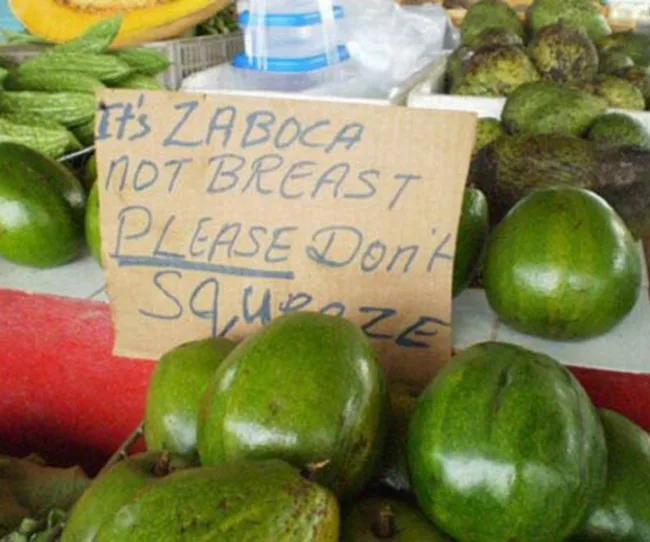 It's ZABOCA
NOT BREAST
PLEASE Don't
SQUEEZE